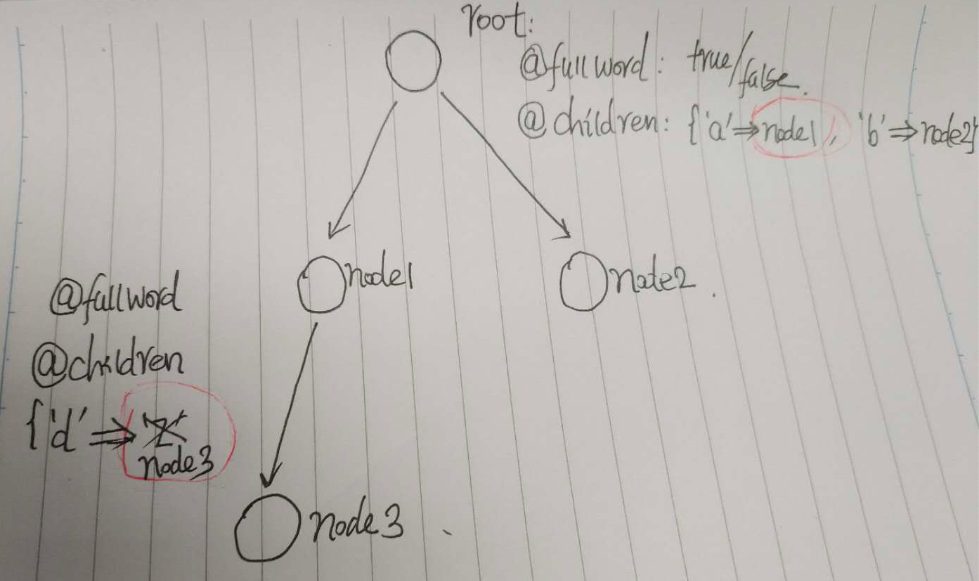 root:
@fullword: true/false.
@children: {'a'⇒node1, 'b'⇒node2}
node1
node2.
@fullword
@children
{'d'⇒
node3
node3.